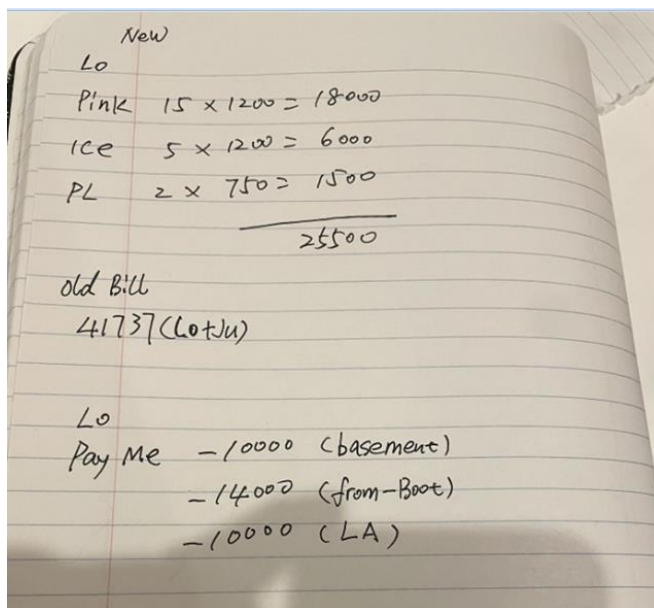 New
Lo
Pink 15 × 1200 = 18000
Ice 5 × 1200 = 6000
PL 2 × 750 = 1500
25500
Old Bill
41737 (Lo+Ju)
Lo
Pay Me -10000 (basement)
-14000 (from-Boot)
-10000 (LA)